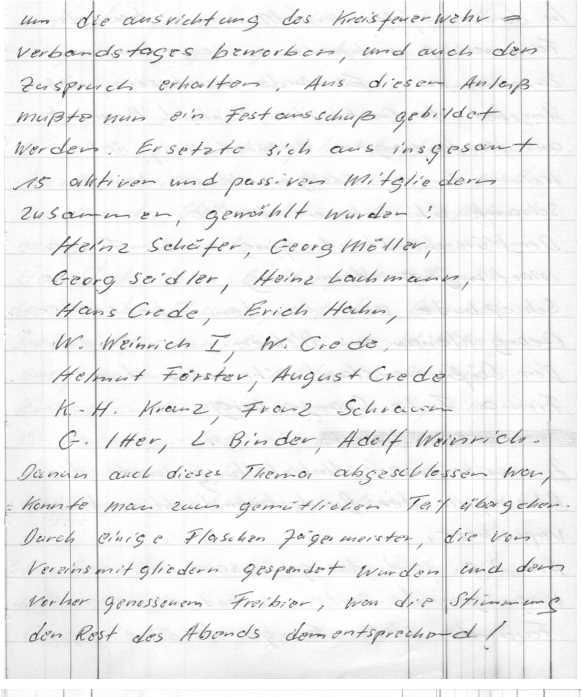 um die ausrichtung des Kreisfeuerwehr =
verbandstages beworben, und auch den
Zuspruch erhalten. Aus diesem Anlaß
mußte nun ein Festausschuß gebildet
werden. Er setzte sich aus insgesamt
15 aktiven und passiven Mitgliedern
zusammen, gewählt wurden:
Heinz Schäfer, Georg Möller,
Georg Seidler, Heinz Lachmann,
Hans Crede, Erich Hahn,
W. Weinrich I, W. Crede,
Helmut Förster, August Crede
K-H. Kranz, Franz Schramm
G. Itter, L. Binder, Adolf Weinrich.
Danun auch dieses Thema abgeschlossen war,
konnte man zum gemütlichen Teil übergehen.
Durch einige Flaschen Jägermeister, die von
Vereinsmitgliedern gespendet wurden und dem
vorher genossenem Freibier, war die Stimmung
den Rest des Abends dementsprechend!